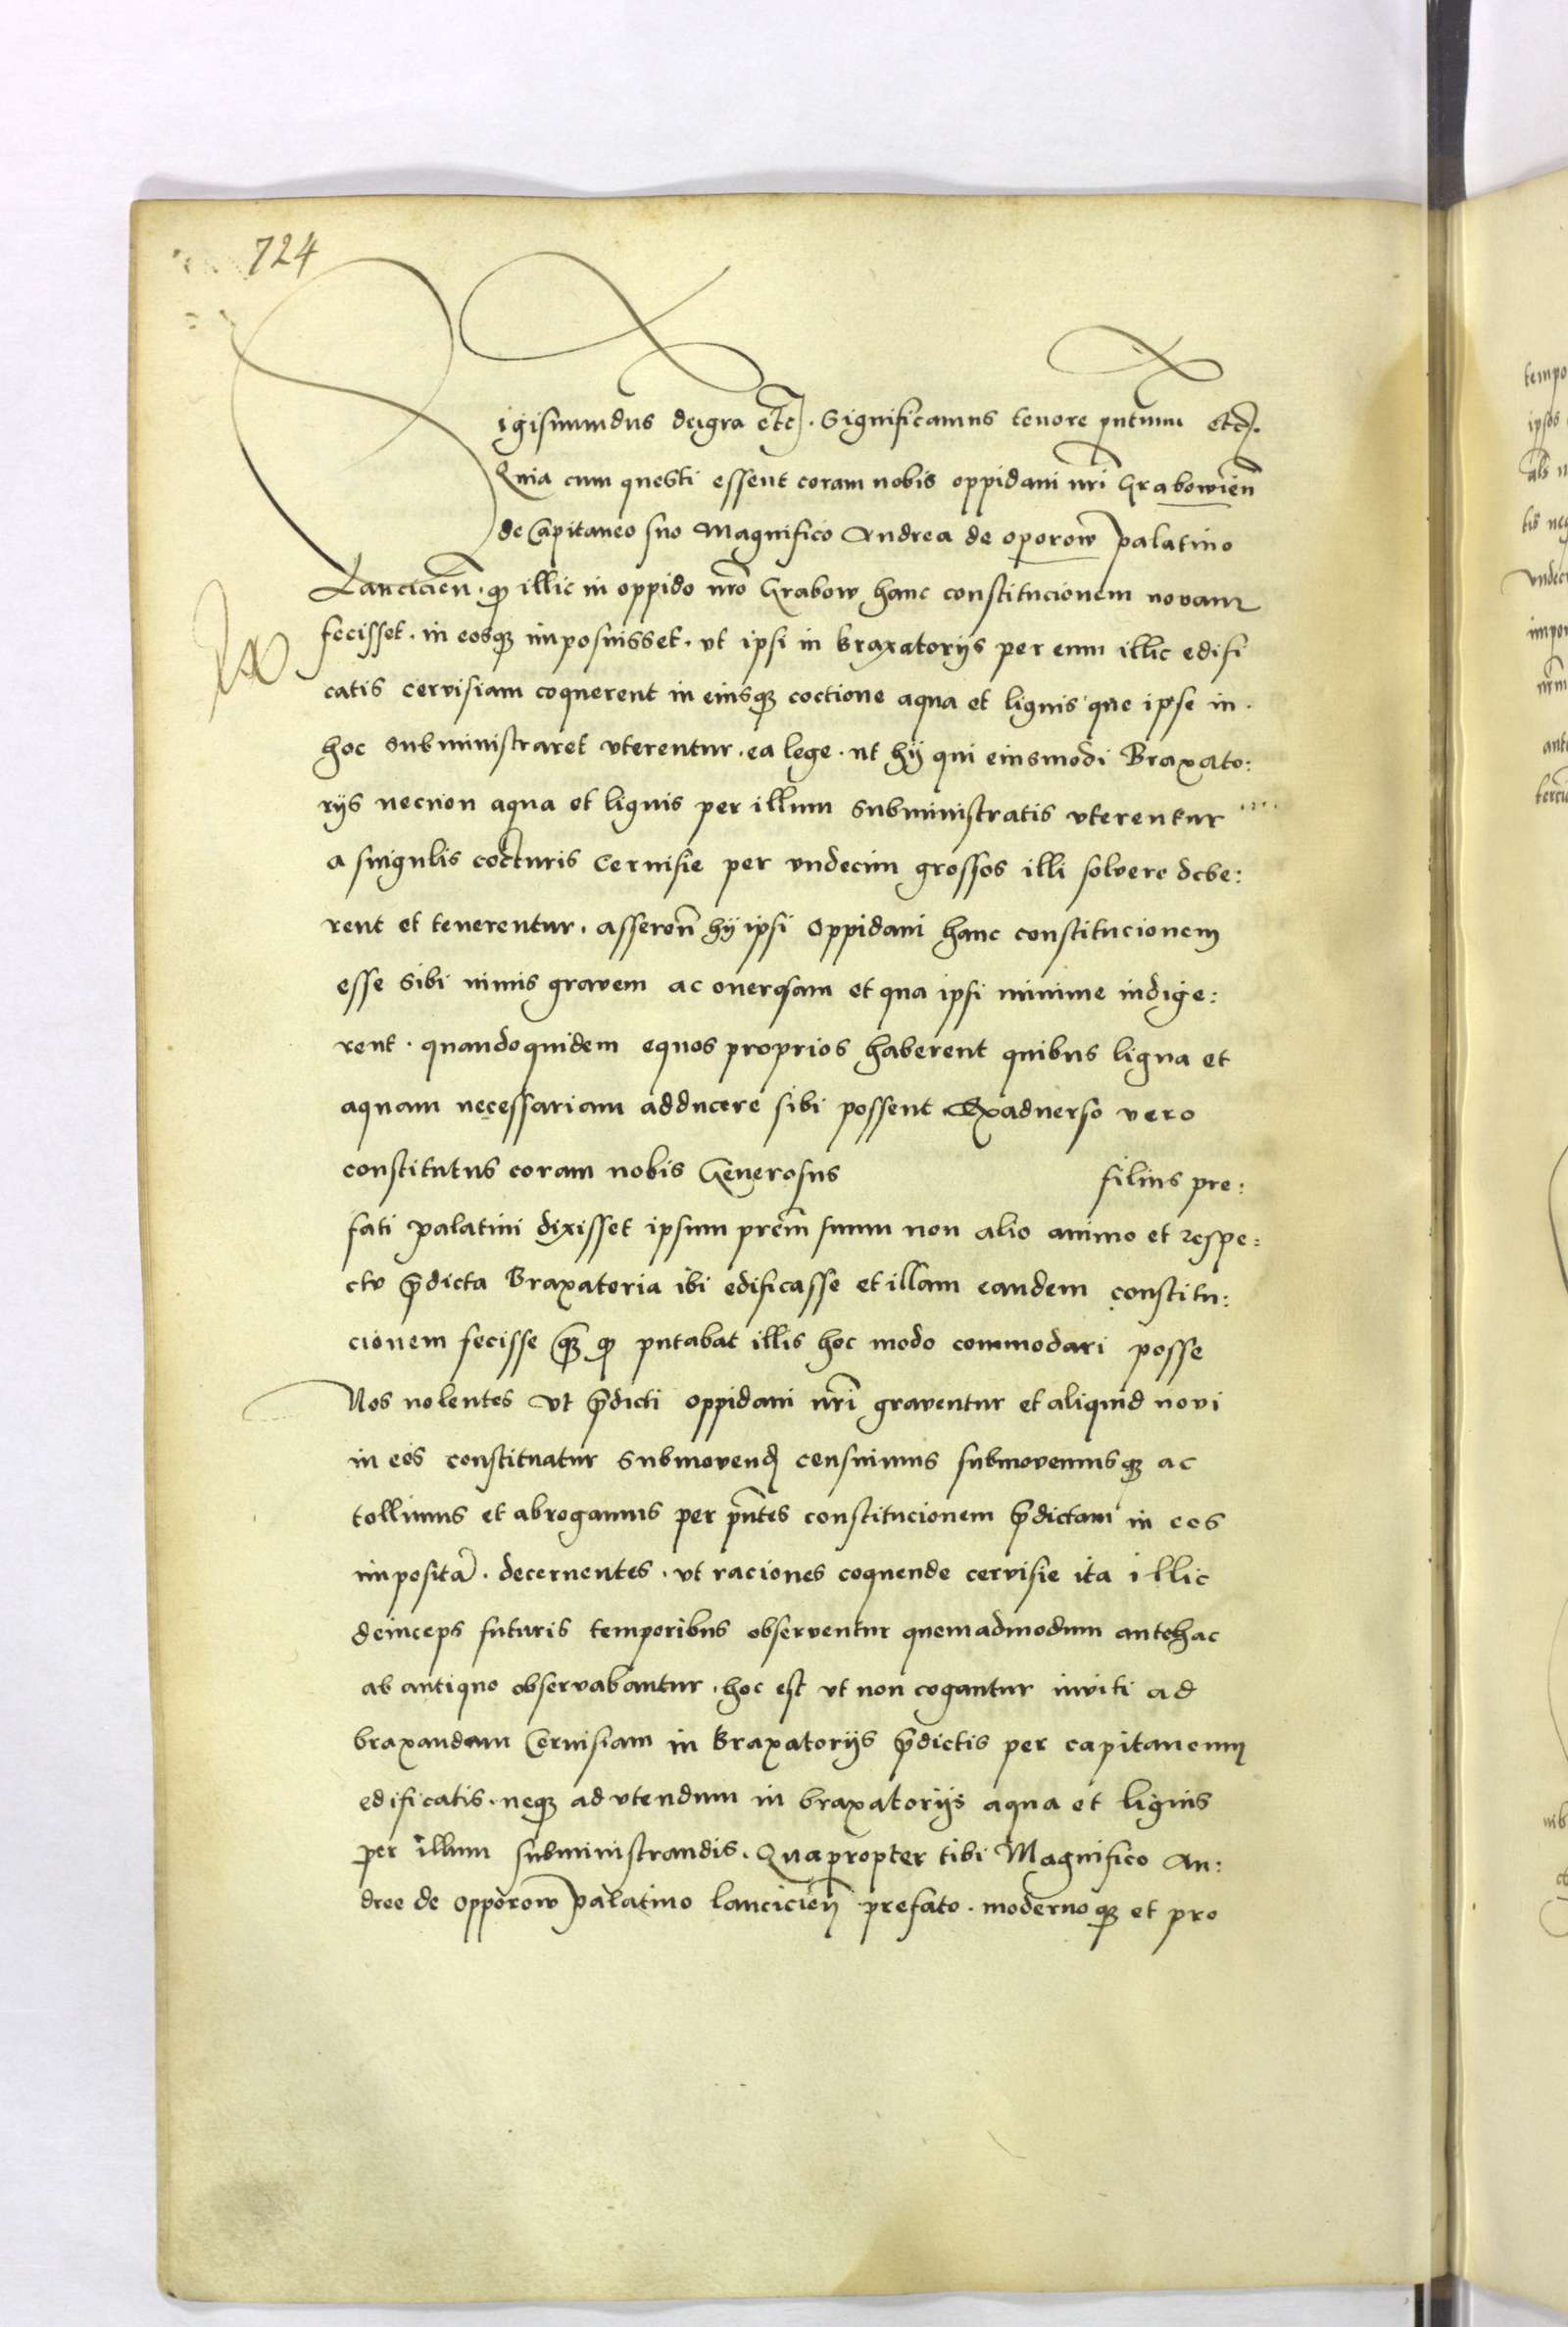 724
Sigismundus dei gra etc. Significamus tenore pntium etc.
Quia cum questi essent coram nobis oppidani nri Grabowien
de Capitaneo suo Magnifico Andrea de Oporow palatino
Lancicien. qz illic in oppido nro Grabow hanc constitucionem novam
fecisset. in eosqz imposuisset. vt ipsi in braxatorijs per eum illic edifi
catis cervisiam coquerent in eiusqz coctione aqua et lignis que ipse in.
hoc subministraret vterentur. ea lege. ut hij qui eiusmodi Braxato:
rijs necnon aqua et lignis per illum subministratis vterentur ....
a singulis cocturis Cervisie per vndecim grossos illi solvere debe:
rent et tenerentur. asseren hij ipsi oppidani hanc constitucionem
esse sibi nimis gravem ac onerosam et qua ipsi minime indige:
rent. quandoquidem equos proprios haberent quibus ligna et
aquam necessariam adducere sibi possent Exadverso vero
constitutus coram nobis Generosus filius pre:
fati palatini dixisset ipsum prem suum non alio animo et respe:
ctu predicta Braxatoria ibi edificasse et illam eandem constitu:
cionem fecisse qz qz putabat illis hoc modo commodari posse
Nos nolentes vt predicti oppidani nri graventur et aliquid novi
in eos constituatur submovend censuimus submovemusqz ac
tollimus et abrogamus per pntes constitucionem predictam in eos
imposita. decernentes. vt raciones coquende cervisie ita illic
deinceps futuris temporibus observentur quemadmodum antehac
ab antiquo observabantur. hoc est vt non cogantur inviti ad
braxandam Cervisiam in braxatorijs predictis per capitaneum
edificatis. neqz ad vtendum in braxatorijs aqua et lignis
per illum subministrandis. Quapropter tibi Magnifico An:
dree de Opporow palatino lancicien prefato. modernoqz et pro